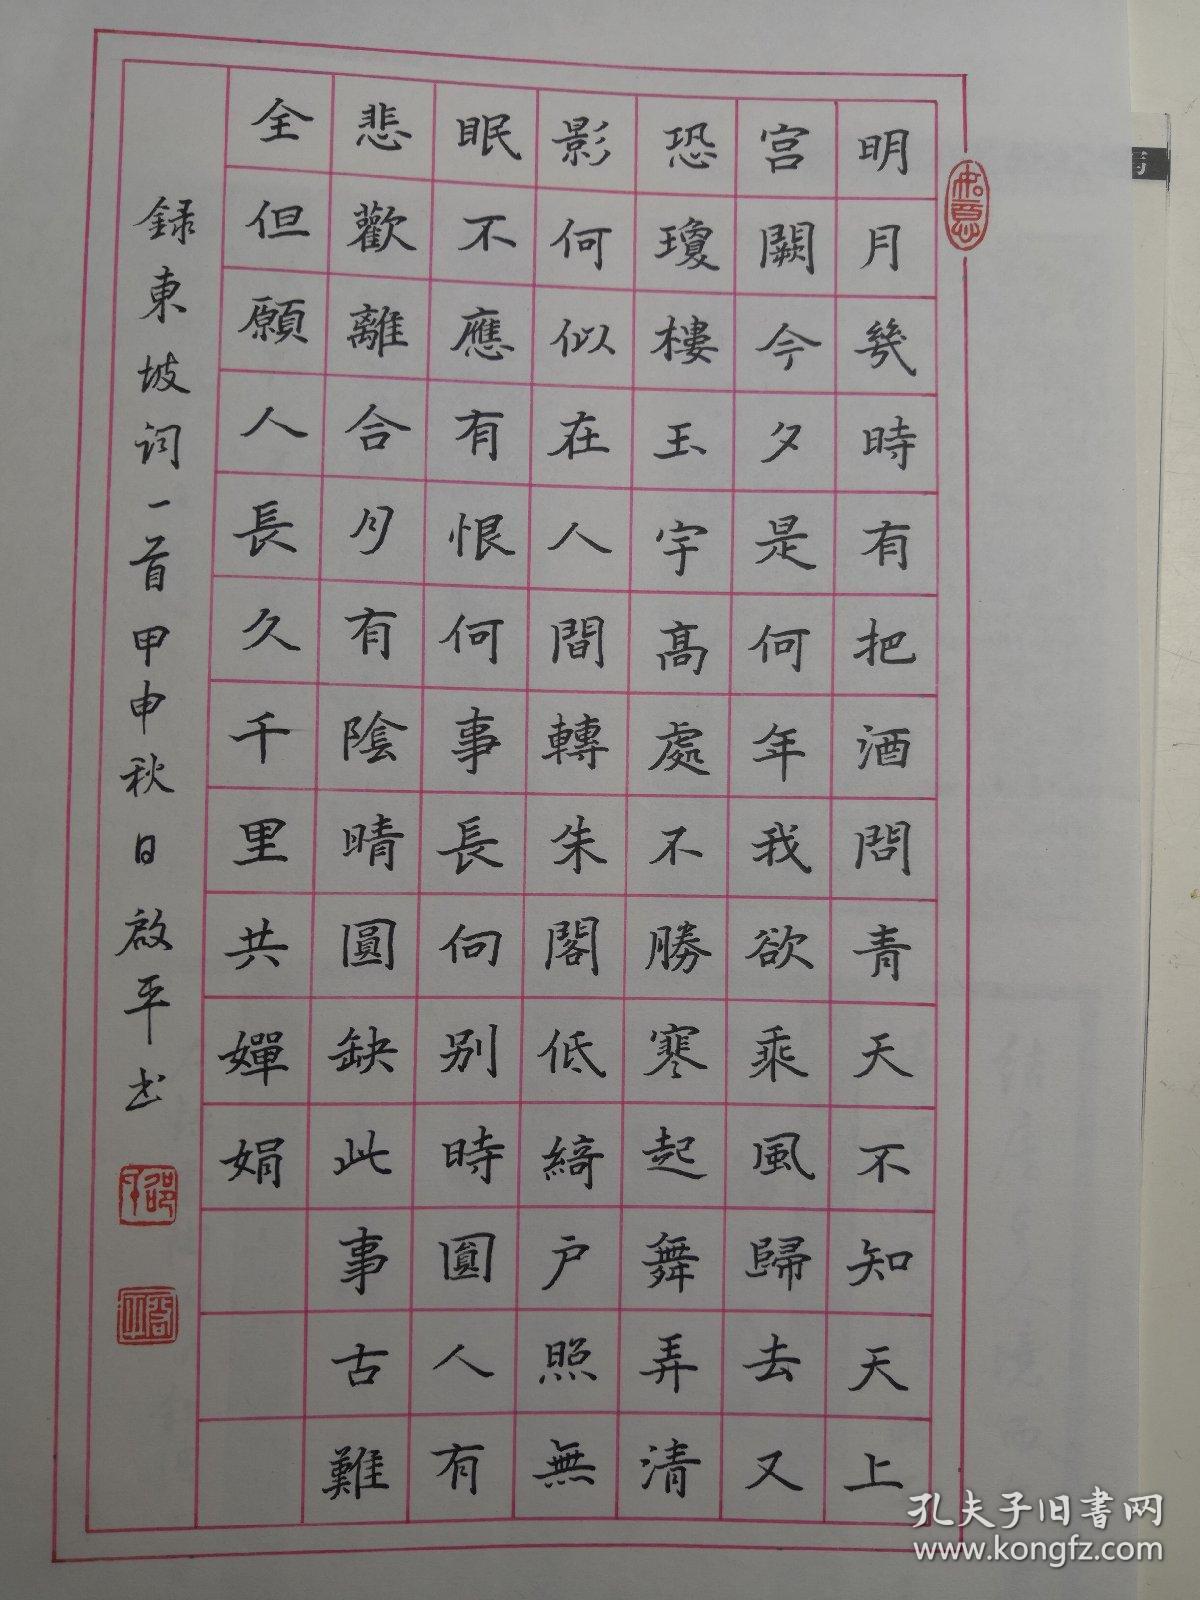 明月幾時有把酒問青天不知天上
宮闕今夕是何年我欲乘風歸去又
恐瓊樓玉宇高處不勝寒起舞弄清
影何似在人間轉朱閣低綺户照無
眠不應有恨何事長向别時圓人有
悲歡離合月有陰晴圓缺此事古難
全但願人長久千里共嬋娟
録東坡词一首甲申秋日啟平书
如意
孔夫子旧书网
www.kongfz.com